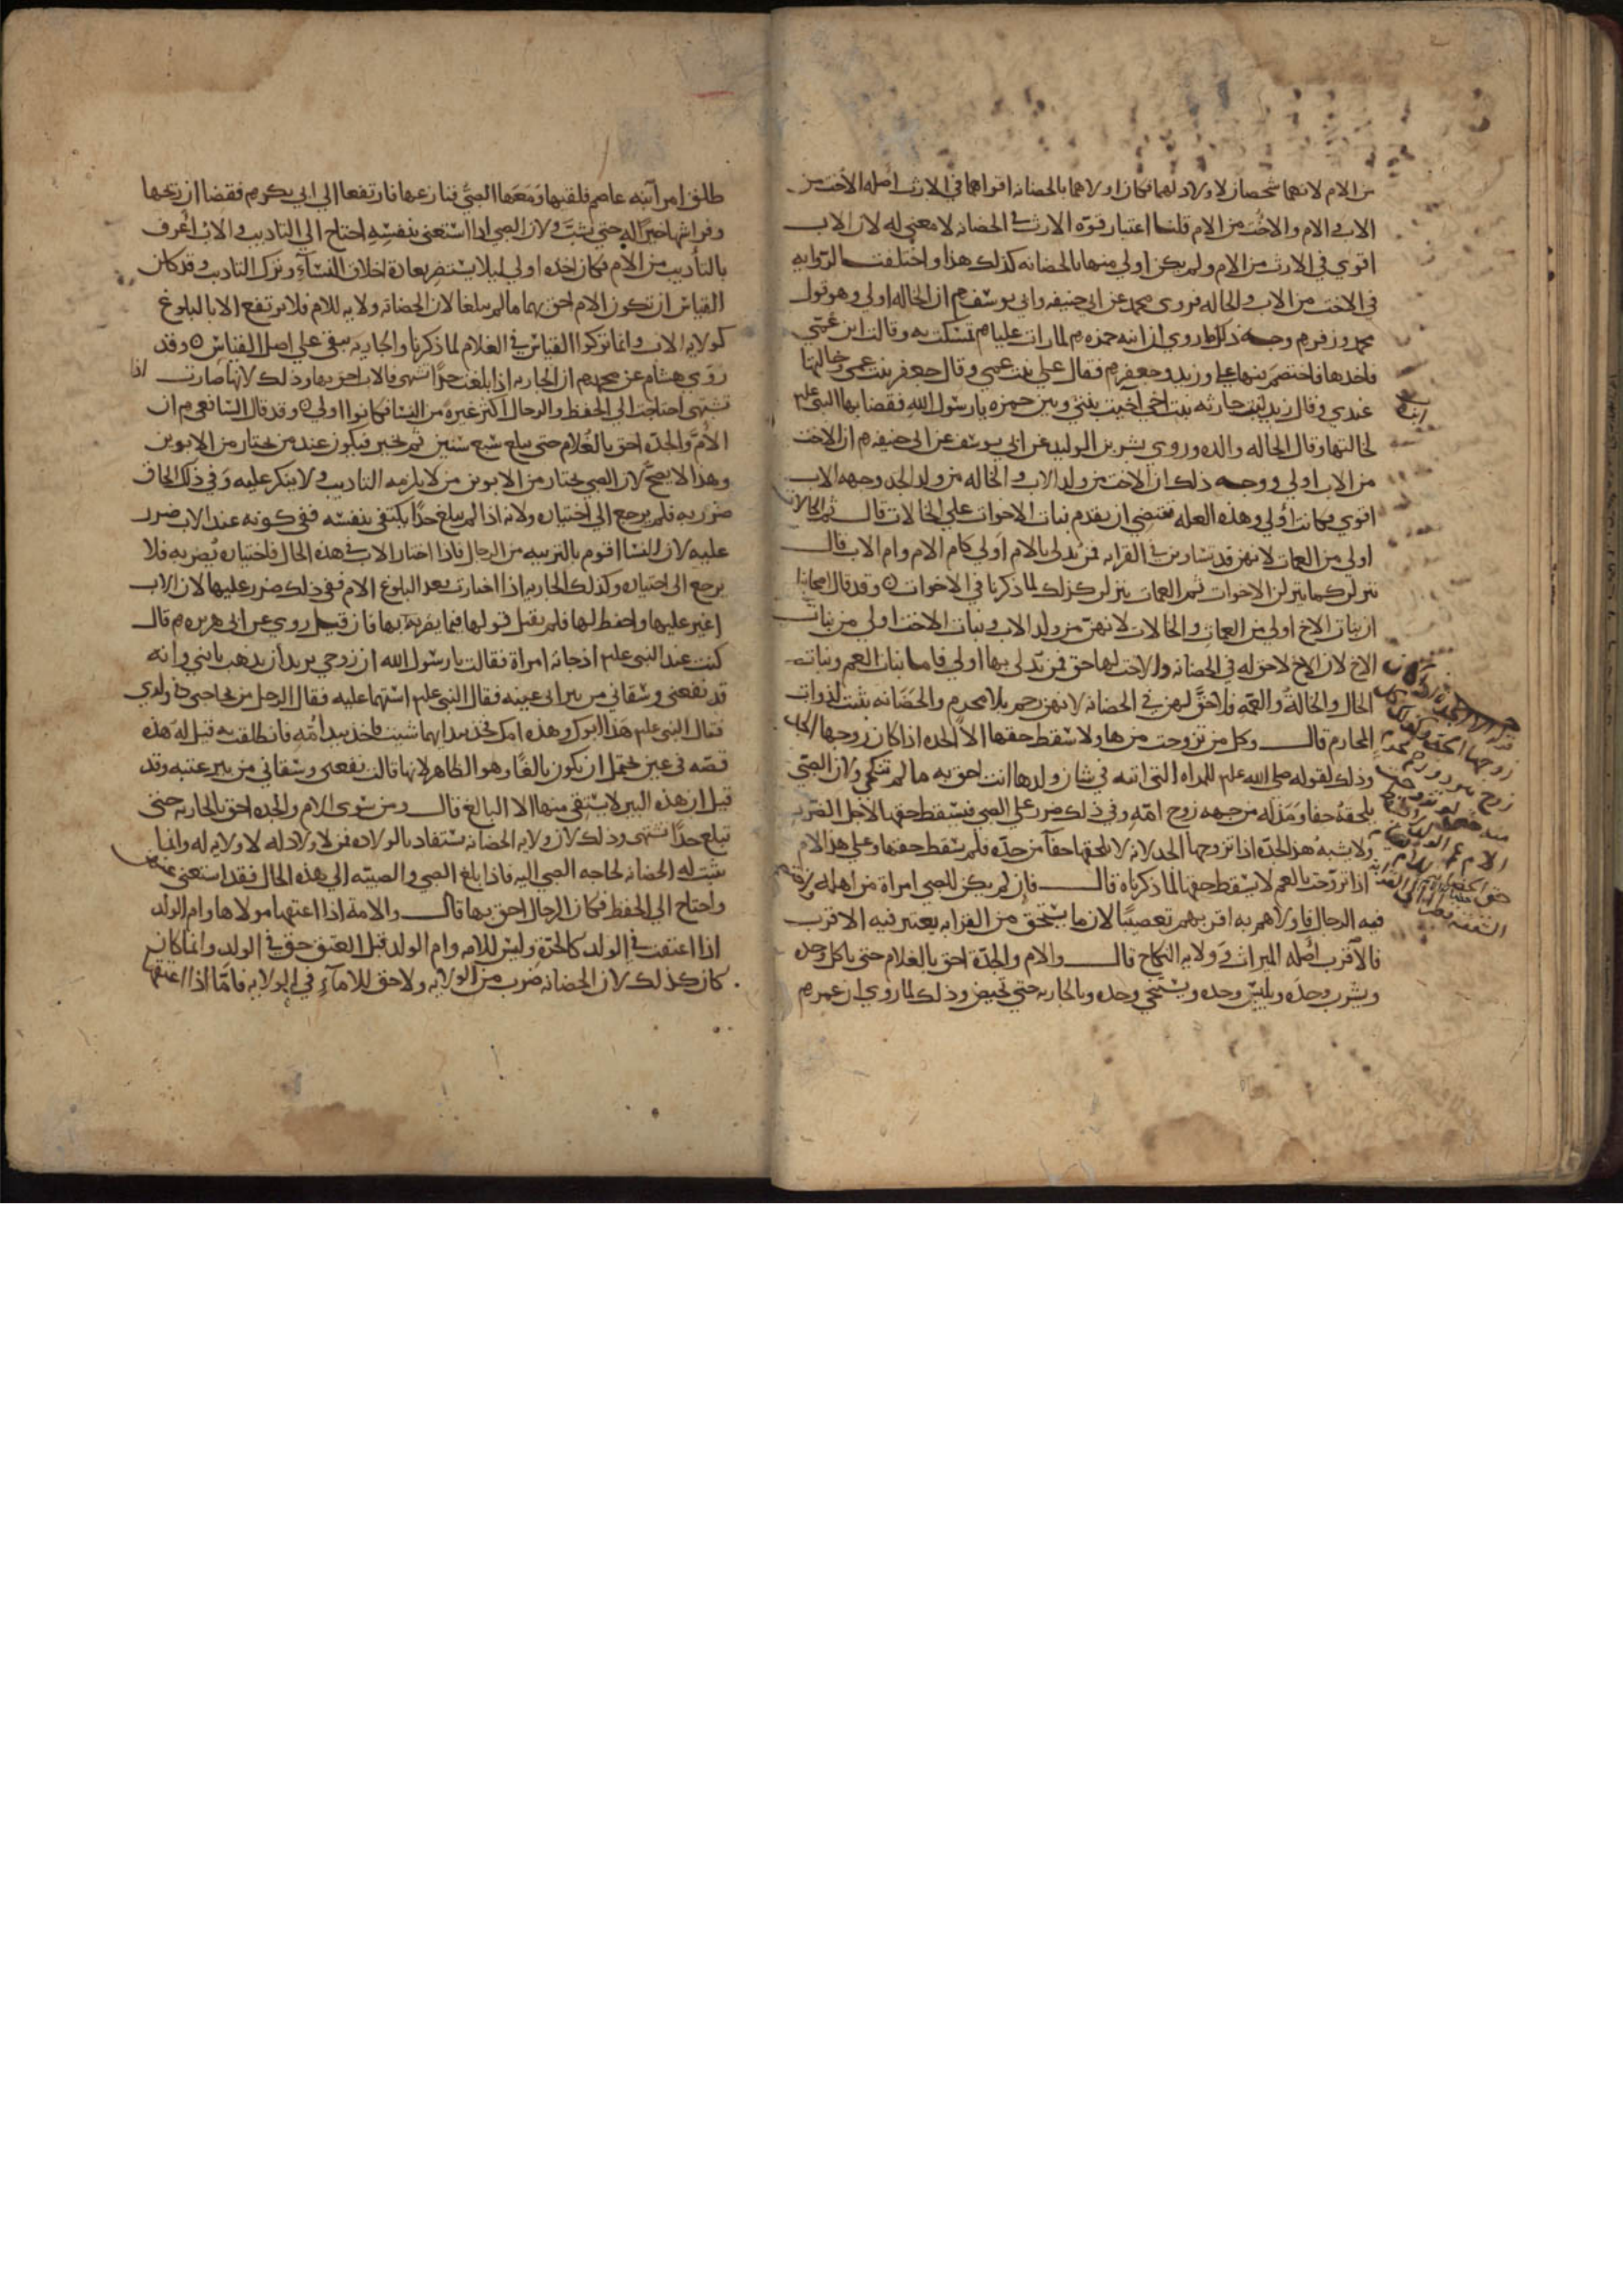 من الام لانهما شخصان لا ولاد لهما فكان اولاهما بالحضانه اقواهما في الارث اصله الاخت من
الاب والام والاخت من الام قلنا اعتبار قوة الارث في الحضانه لا معنى له لان الاب
اقوي في الارث من الام ولم يكن اولي منها بالحضانه كذلك هذا واختلفت الروايه
في الاخت من الاب والخاله فروي محمد عن ابي حنيفه وابي يوسف رم ان الخاله اولي وهو قول
محمد وزفر رم وجه ذلك ما روي ان ابنه حمزه رم لما رات عليا رم تمسكت به وقالت ابن عمي
فاخذها فاختصم فيها علي وزيد وجعفر رم فقال علي بنت عمي وقال جعفر بنت عمي وخالتها
عندي وقال زيد بن حارثه بنت اخي اخيت بيني وبين حمزه يا رسول الله فقضا بها النبي علم
لخالتها وقال الخاله والده وروي بشر بن الوليد عن ابي يوسف عن ابي حنيفه رم ان الاخت
من الاب اولي ووجه ذلك ان الاخت من ولد الاب والخاله من ولد الجد وجهه الاب
اقوي فكانت اولي وهذه العله تقتضي ان يقدم بنات الاخوات علي الخالات قال ثم الخالات
اولي من العمات لانهن قد تساوين في القرابه فمن يدلي بالام اولي كام الام وام الاب قال
ينزلن كما ينزلن الاخوات ثم العمات ينزلن كذلك لما ذكرنا في الاخوات ه وقد قال اصحابنا
ان بنات الاخ اولي من العمات والخالات لانهن من ولد الاب وبنات الاخت اولي من بنات
الاخ لان الاخ لا حق له في الحضانه والاخت لها حق فمن يدلي بها اولي فاما بنات العم وبنات
الخال والخاله والعمه فلا حق لهن في الحضانه لانهن رحم بلا محرم والحضانه تثبت لذوات
المحارم قال وكل من تزوجت من هاولا سقط حقها الا الجده اذا كان زوجها الجد
وذلك لقوله صلى الله علم للمراه التي اتته في شان ولدها انت احق به ما لم تنكحي ولان الصبي
يلحقه جفا ومذله من جهه زوج امه وفي ذلك ضرر علي الصبي فيسقط حقها لاجل الضرر
ولا يشبه هذا الجده اذا تزوجها الجد لانه لا يلحقها جفا من جده فلم يسقط حقها وعلي هذا الام
اذا تزوجت بالعم لا يسقط حقها لما ذكرناه قال فان لم يكن للصبي امراة من اهله واختصم
فيه الرجال فاولاهم به اقربهم تعصيبا لان ما يستحق من القرابه يعتبر فيه الاقرب
فالاقرب اصله الميراث وولايه النكاح قال والام والجدة احق بالغلام حتى ياكل وحده
ويشرب وحده ويلبس وحده ويستنجي وحده وبالجاريه حتي تحيض وذلك لما روي ان عمر رم
طلق امراته ام عاصم فلقيها ومعها الصبي فنازعها فارتفعا الي ابي بكر رم فقضا ان ريحها
وفراشها خير له حتى يشب ولان الصبي اذا استغنى بنفسه احتاج الي التاديب والاب اعرف
بالتأديب من الام فكان اخذه اولي ليلا يستضر بعادة اخلاق النساء وترك التاديب وقد كان
القياس ان تكون الام احق بهما ما لم يبلغا لان الحضانه ولايه للام فلا ترتفع الا بالبلوغ
كولايه الاب وانما تركوا القياس في الغلام لما ذكرنا والجاريه بقي علي اصل القياس ه وقد
روي هشام عن محمد رم ان الجاريه اذا بلغت حدا تشتهى فالاب احق بها وذلك لانها صارت اذا
تشتهي احتاجت الي الحفظ والرجال اكثر غيرة من النسا فكانوا اولي ه وقد قال الشافعي رم ان
الام والجده احق بالغلام حتى يبلغ سبع سنين ثم يخير فيكون عند من يختار من الابوين
وهذا لا يصح لان الصبي يختار من الابوين من لا يلزمه التاديب ولا ينكر عليه وفي ذلك الحاق
ضرر به فلم يرجع الي اختياره ولانه اذا لم يبلغ حدا يكتفي بنفسه ففي كونه عند الاب ضرر
عليه لان النسا اقوم بالتربيه من الرجال فاذا اختار الاب في هذه الحال فاختياره يضر به فلا
يرجع الى اختياره وكذلك الجاريه اذا اختارت بعد البلوغ الام ففي ذلك ضرر عليها لان الاب
اغير عليها واحفظ لها فلم يقبل قولها فيما يضر بها فان قيل روي عن ابي هريره رم قال
كنت عند النبي علم اذ جاته امراة فقالت يا رسول الله ان زوجي يريد ان يذهب بابني وانه
قد نفعني وسقاني من بير ابي عنبه فقال النبي علم استهما عليه فقال الرجل من يحاجني في ولدي
فقال النبي علم هذا ابوك وهذه امك فخذ بيد ايهما شيت فاخذ بيد امه فانطلقت به قيل له هذه
قصه في عين يحتمل ان يكون بالغا وهو الظاهر لانها قالت نفعني وسقاني من بير عنبه وقد
قيل ان هذه البير لا يستقي منها الا البالغ قال ومن سوى الام والجده احق بالجاريه حتى
تبلغ حدا تشتهى وذلك لان ولايه الحضانه تستفاد بالولاده فمن لا ولاد له لا ولايه له وانما
يثبت له الحضانه لحاجه الصبي اليه فاذا بلغ الصبي والصبيه الي هذه الحال فقد استغنى عنهن
واحتاج الي الحفظ فكان الرجال احق بها قال والامة اذا اعتقها مولاها وام الولد
اذا اعتقت في الولد كالحرة وليس للامه وام الولد قبل العتق حق في الولد وانما كان
كان كذلك لان الحضانه ضرب من الولايه ولا حق للاماء في الولايه فاما اذا اعتقها